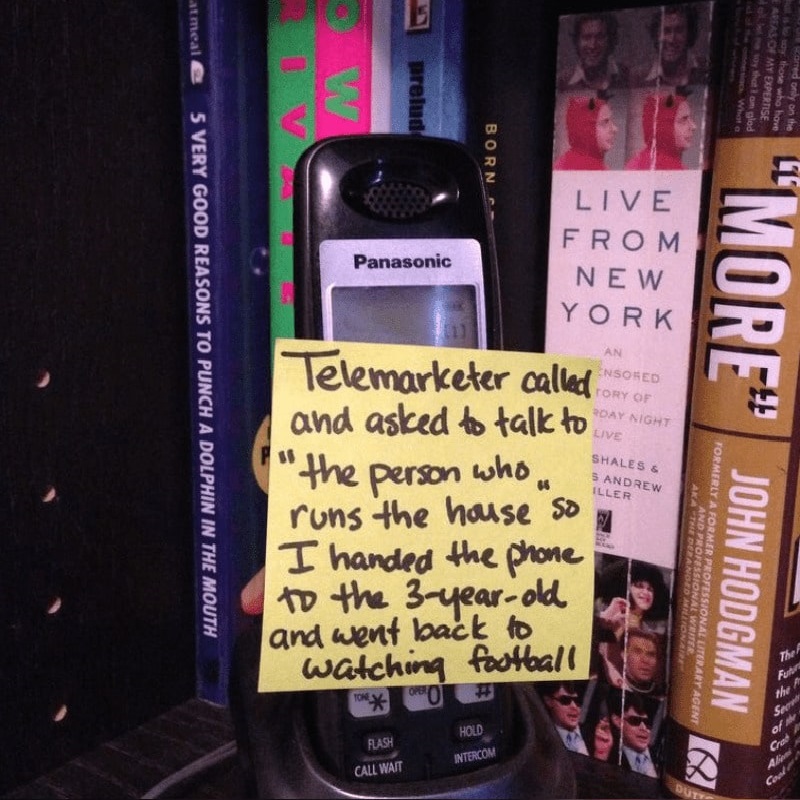 Telemarketer called
and asked to talk to
"the person who
runs the house" so
I handed the phone
to the 3-year-old
and went back to
watching football
Panasonic
TONE
*
OPER 0
#
FLASH
CALL WAIT
HOLD
INTERCOM
5 VERY GOOD REASONS TO PUNCH A DOLPHIN IN THE MOUTH
BORN
LIVE
FROM
NEW
YORK
AN
SHALES &
ANDREW
"MORE"
JOHN HODGMAN
FORMERLY A FORMER PROFESSIONAL LITERARY AGENT
AND PROFESSIONAL WRITER,
AKA "THE DERANGED MILLIONAIRE"
AREAS OF MY EXPERTISE